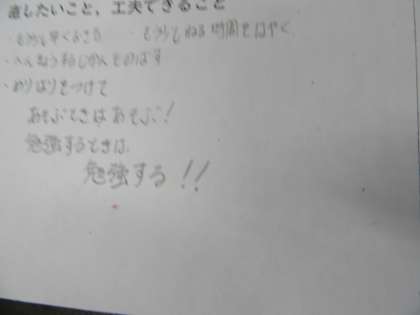 直したいこと，工夫できること
・もう少し早くおきる ・もう少しねる時間をはやく
・べんきょうするじかんをのばす
・めりはりをつけて
あそぶときはあそぶ！
勉強するときは
勉強する！！